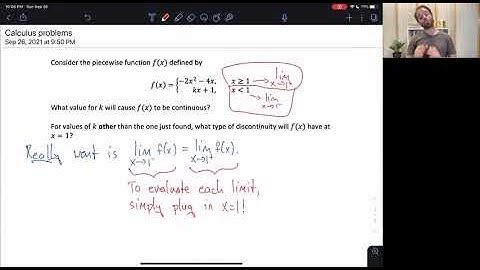 Calculus problems
Sep 26, 2021 at 9:50 PM
Consider the piecewise function f(x) defined by
f(x) = { -2x² - 4x, x ≥ 1 → lim x→1⁺
kx + 1, x < 1 → lim x→1⁻
What value for k will cause f(x) to be continuous?
For values of k other than the one just found, what type of discontinuity will f(x) have at
x = 1?
Really want is lim x→1⁻ f(x) = lim x→1⁺ f(x).
To evaluate each limit,
simply plug in x=1!